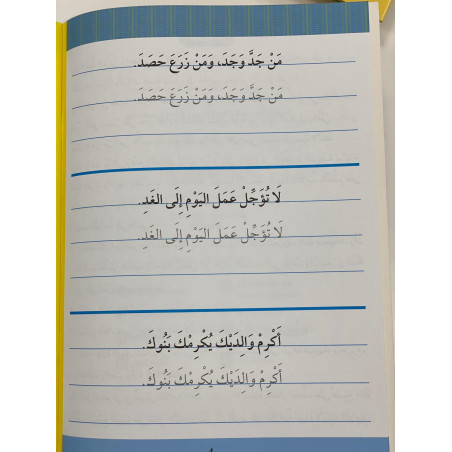 مَنْ جَدَّ وَجَدَ، وَمَنْ زَرَعَ حَصَدَ.
مَنْ جَدَّ وَجَدَ، وَمَنْ زَرَعَ حَصَدَ.
لَا تُؤَجِّلْ عَمَلَ اليَوْمِ إِلَى الغَدِ.
لَا تُؤَجِّلْ عَمَلَ اليَوْمِ إِلَى الغَدِ.
أَكْرِمْ وَالِدَيْكَ يُكْرِمْكَ بَنُوكَ.
أَكْرِمْ وَالِدَيْكَ يُكْرِمْكَ بَنُوكَ.